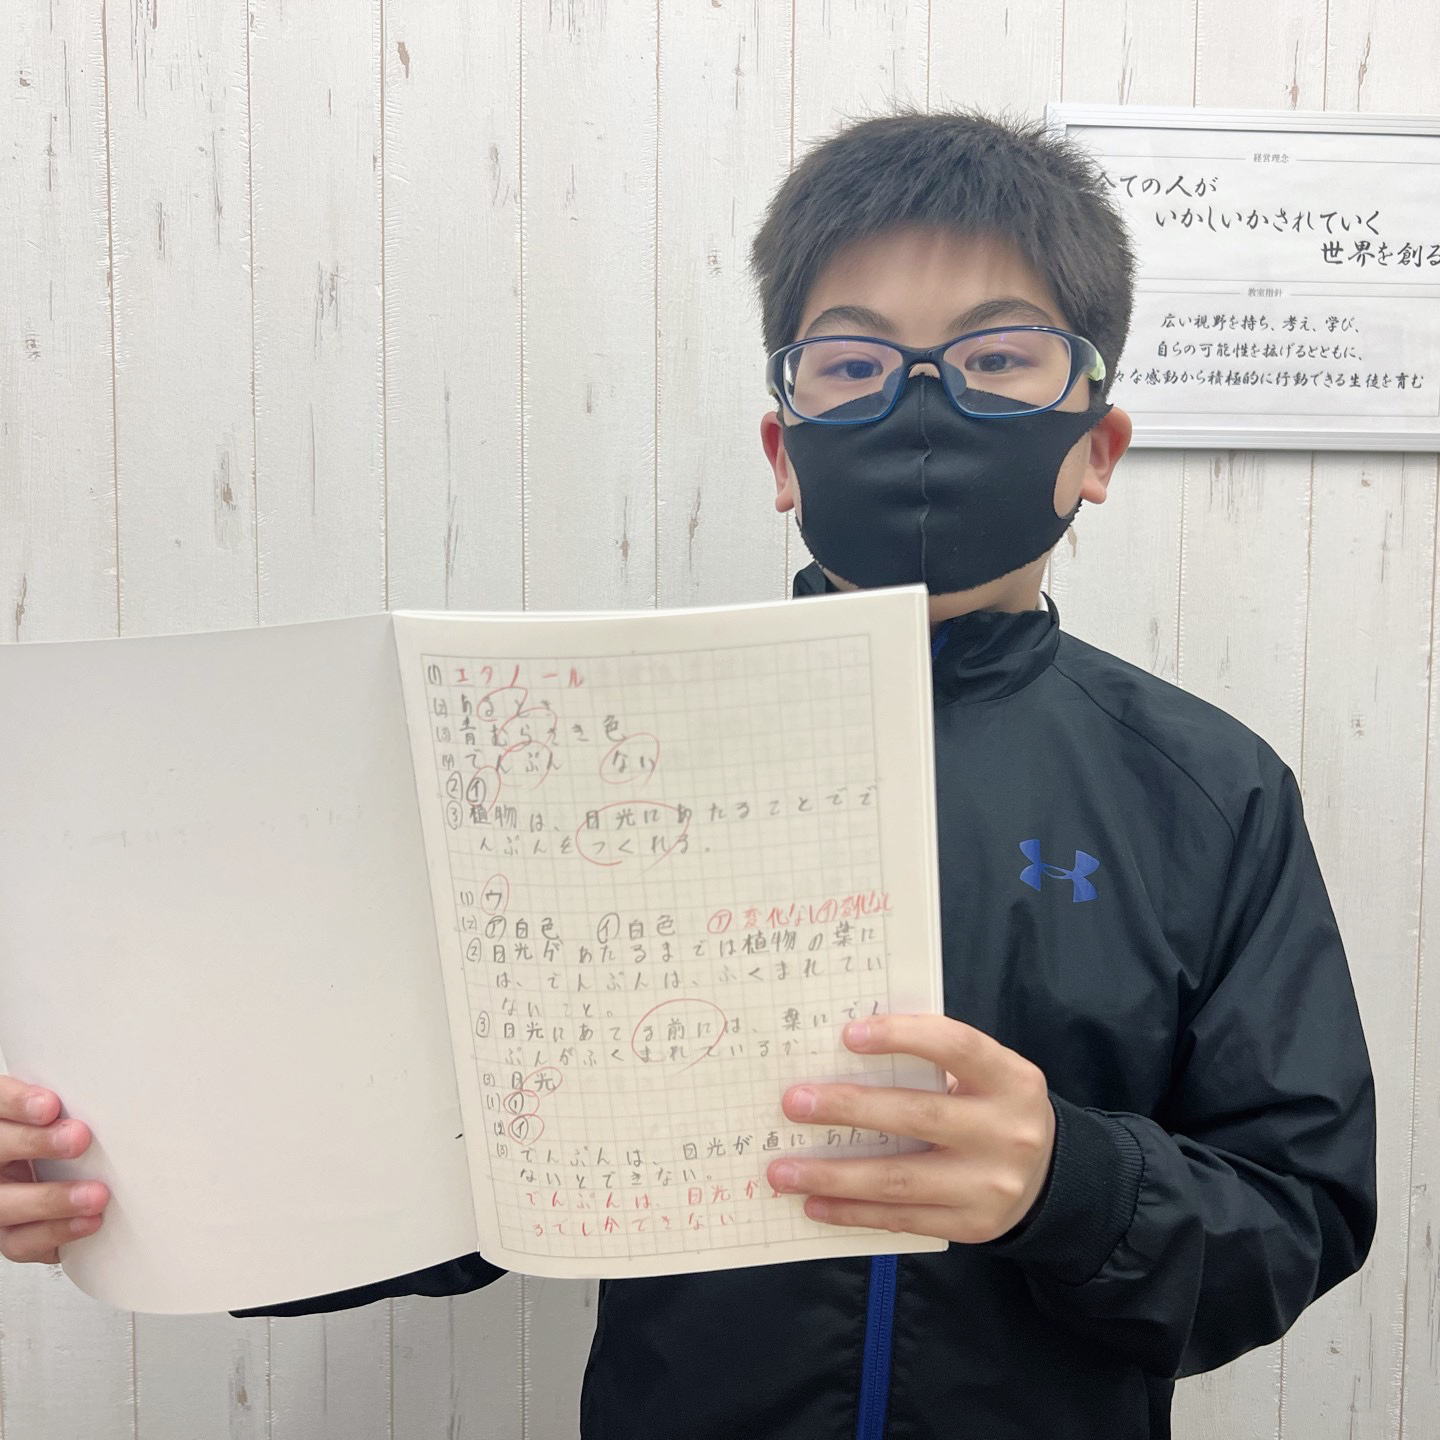 経営理念
全ての人が
いかしいかされていく
世界を創る
教室指針
広い視野を持ち、考え、学び、
自らの可能性を拡げるとともに、
々な感動から積極的に行動できる生徒を育む
(1) エタノール
(2) あるとき
(3) 青むらさき色
(4) でんぷん ない
② イ
③ 植物は、日光にあたることでで
んぷんをつくれる。
(1) ウ
(2) ア白色 イ白色 ア変化なしイ変化なし
② 日光があたるまでは植物の葉に
は、でんぷんは、ふくまれてい
ないこと。
③ 日光にあてる前には、葉にでん
ぷんがふくまれているか。
(3) 日光
(1) イ
(2) イ
(3) でんぷんは、日光が直にあたら
ないとできない。
でんぷんは、日光が
ろでしかできない。